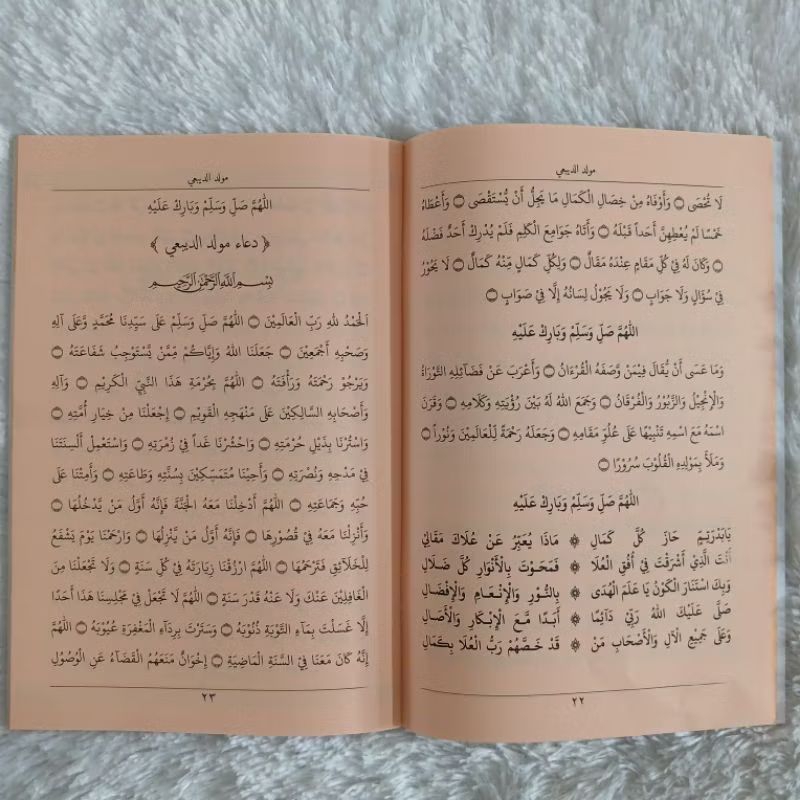 مولد الديبعي
لَا تُحْصَى ۞ وَأَوْفَاهُ مِنْ خِصَالِ الْكَمَالِ مَا يَجِلُّ أَنْ يُسْتَقْصَى ۞ وَأَعْطَاهُ
خَمْسًا لَمْ يُعْطِهِنَّ أَحَداً قَبْلَهُ ۞ وَأَتَاهُ جَوَامِعَ الْكَلِمِ فَلَمْ يُدْرِكْ أَحَدٌ فَضْلَهُ
۞ وَكَانَ لَهُ فِيْ كُلِّ مَقَامٍ عِنْدَهُ مَقَالٌ ۞ وَلِكُلِّ كَمَالٍ مِنْهُ كَمَالٌ ۞ لَا يَحُوْرُ
فِيْ سُؤَالٍ وَلَا جَوَابٍ ۞ وَلَا يَجُوْلُ لِسَانُهُ إِلَّا فِيْ صَوَابٍ ۞
اللّٰهُمَّ صَلِّ وَسَلِّمْ وَبَارِكْ عَلَيْهِ
وَمَا عَسَى أَنْ يُقَالَ فِيْمَنْ وَصَفَهُ الْقُرْءَانُ ۞ وَأَعْرَبَ عَنْ فَضَآئِلِهِ التَّوْرَاةُ
وَالْإِنْجِيْلُ وَالزَّبُوْرُ وَالْفُرْقَانُ ۞ وَجَمَعَ اللهُ لَهُ بَيْنَ رُؤْيَتِهِ وَكَلَامِهِ ۞ وَقَرَنَ
اسْمَهُ مَعَ اسْمِهِ تَنْبِيْهًا عَلَى عُلُوِّ مَقَامِهِ ۞ وَجَعَلَهُ رَحْمَةً لِلْعَالَمِيْنَ وَنُوْراً ۞
وَمَلَأَ بِمَوْلِدِهِ الْقُلُوْبَ سُرُوْرًا ۞
اللّٰهُمَّ صَلِّ وَسَلِّمْ وَبَارِكْ عَلَيْهِ
يَابَدْرَتِمٍّ حَازَ كُلَّ كَمَالِ ۞ مَاذَا يُعَبِّرُ عَنْ عُلَاكَ مَقَالِيْ
أَنْتَ الَّذِيْ أَشْرَقْتَ فِيْ أُفُقِ الْعُلَا ۞ فَمَحَوْتَ بِالْأَنْوَارِ كُلَّ ضَلَالِ
وَبِكَ اسْتَنَارَ الْكَوْنُ يَا عَلَمَ الْهُدَى ۞ بِالنُّوْرِ وَالْإِنْعَامِ وَالْإِفْضَالِ
صَلَّى عَلَيْكَ اللهُ رَبِّيْ دَآئِمًا ۞ أَبَدًا مَّعَ الْإِبْكَارِ وَالْأَصَالِ
وَعَلَى جَمِيْعِ الْآلِ وَالْأَصْحَابِ مَنْ ۞ قَدْ خَصَّهُمْ رَبُّ الْعُلَا بِكَمَالِ
٢٢
مولد الديبعي
اللّٰهُمَّ صَلِّ وَسَلِّمْ وَبَارِكْ عَلَيْهِ
﴿ دعاء مولد الديبعي ﴾
بِسْمِ اللهِ الرَّحْمٰنِ الرَّحِيْمِ
اَلْحَمْدُ لِلهِ رَبِّ الْعَالَمِيْنَ ۞ اللّٰهُمَّ صَلِّ وَسَلِّمْ عَلَى سَيِّدِنَا مُحَمَّدٍ وَّعَلَى آلِهِ
وَصَحْبِهِ أَجْمَعِيْنَ ۞ جَعَلَنَا اللهُ وَإِيَّاكُمْ مِمَّنْ يَّسْتَوْجِبُ شَفَاعَتَهُ ۞
وَيَرْجُوْ رَحْمَتَهُ وَرَأْفَتَهُ ۞ اللّٰهُمَّ بِحُرْمَةِ هَذَا النَّبِيِّ الْكَرِيْمِ ۞ وَآلِهِ
وَأَصْحَابِهِ السَّالِكِيْنَ عَلَى مَنْهَجِهِ الْقَوِيْمِ ۞ اِجْعَلْنَا مِنْ خِيَارِ أُمَّتِهِ ۞
وَاسْتُرْنَا بِذَيْلِ حُرْمَتِهِ ۞ وَاحْشُرْنَا غَداً فِيْ زُمْرَتِهِ ۞ وَاسْتَعْمِلْ أَلْسِنَتَنَا
فِيْ مَدْحِهِ وَنُصْرَتِهِ ۞ وَأَحْيِنَا مُتَمَسِّكِيْنَ بِسُنَّتِهِ وَطَاعَتِهِ ۞ وَأَمِتْنَا عَلَى
حُبِّهِ وَجَمَاعَتِهِ ۞ اللّٰهُمَّ أَدْخِلْنَا مَعَهُ الْجَنَّةَ فَإِنَّهُ أَوَّلُ مَنْ يَّدْخُلُهَا ۞
وَأَنْزِلْنَا مَعَهُ فِيْ قُصُوْرِهَا ۞ فَإِنَّهُ أَوَّلُ مَنْ يَّنْزِلُهَا ۞ وَارْحَمْنَا يَوْمَ يَشْفَعُ
لِلْخَلَآئِقِ فَتَرْحَمُهَا ۞ اللّٰهُمَّ ارْزُقْنَا زِيَارَتَهُ فِيْ كُلِّ سَنَةٍ ۞ وَلَا تَجْعَلْنَا مِنَ
الْغَافِلِيْنَ عَنْكَ وَلَا عَنْهُ قَدْرَ سِنَةٍ ۞ اللّٰهُمَّ لَا تَجْعَلْ فِيْ مَجْلِسِنَا هَذَا أَحَدًا
إِلَّا غَسَلْتَ بِمَآءِ التَّوْبَةِ ذُنُوْبَهُ ۞ وَسَتَرْتَ بِرِدَآءِ الْمَغْفِرَةِ عُيُوْبَهُ ۞ اللّٰهُمَّ
إِنَّهُ كَانَ مَعَنَا فِيْ السَّنَةِ الْمَاضِيَةِ ۞ إِخْوَانٌ مَنَعَهُمُ الْقَضَآءُ عَنِ الْوُصُوْلِ
٢٣